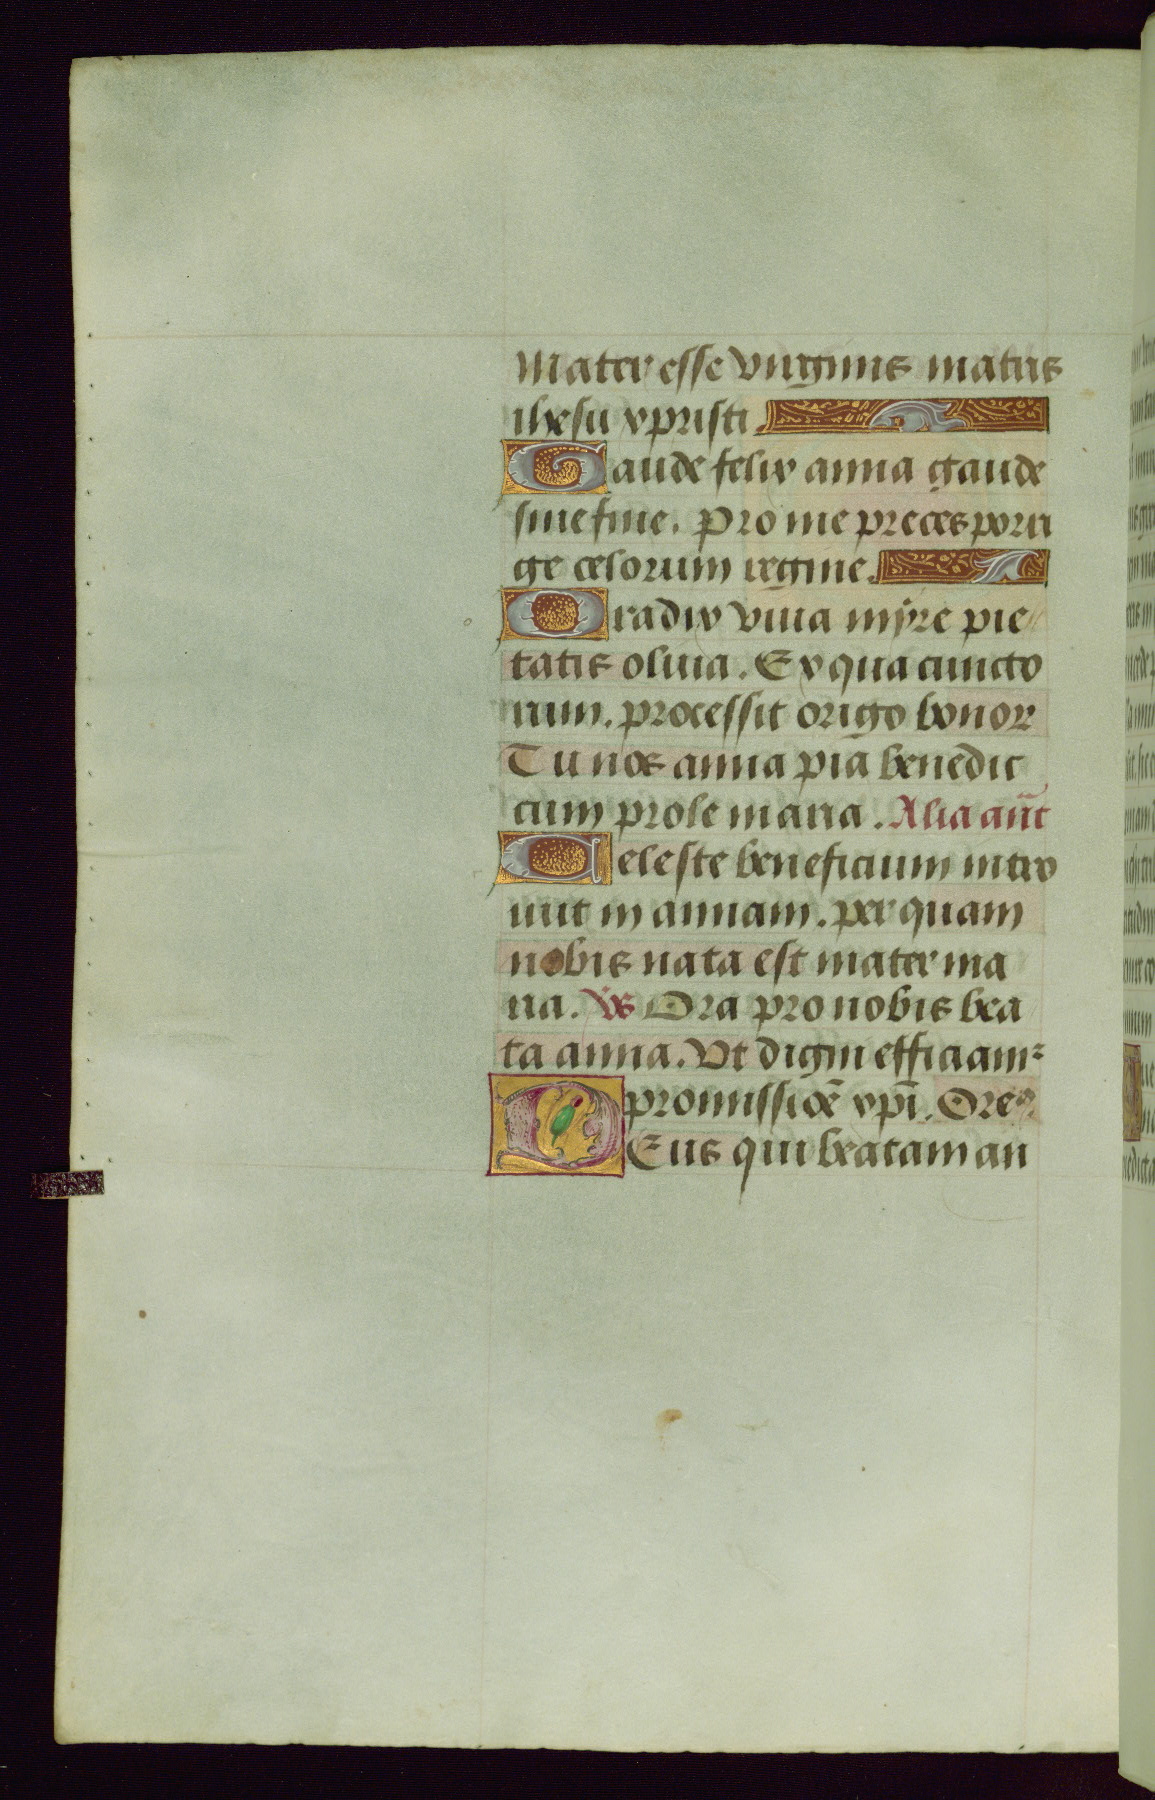 Mater esse virginis matris
ihesu xpristi.
Gaude felix anna gaude
sine fine. Pro me preces porri
ge celorum regine.
O radix viua myre pie
tatis oliua. Ex qua cuncto
rum. processit origo bonor
Tu nos anna pia benedic
cum prole maria. Alia añt
Celeste beneficium intro
iuit in annam. per quam
nobis nata est mater ma
ria. V̄s Ora pro nobis bea
ta anna. Vt digni efficiam²
promissiōē xp̄i. Ore°
DEus qui beatam an